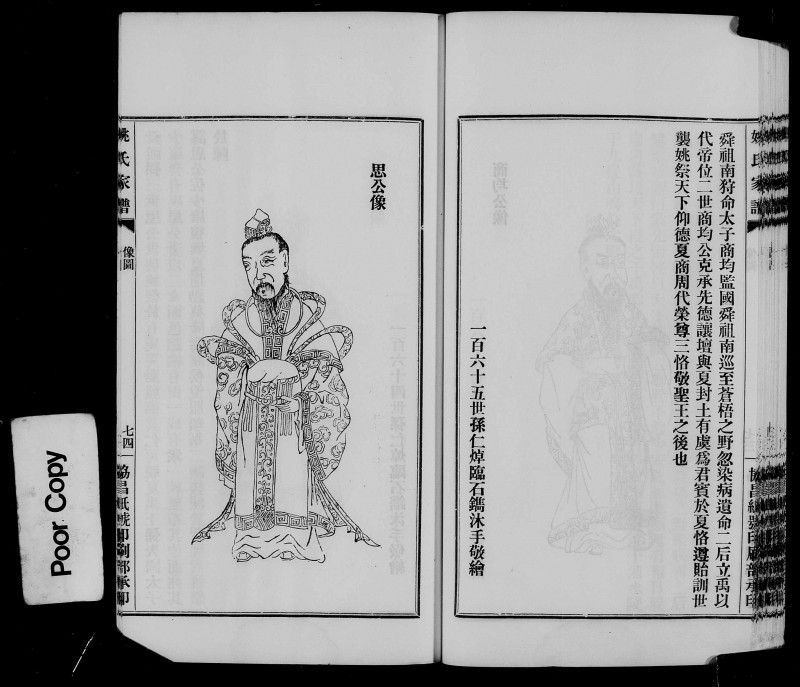 姚氏家譜
舜祖南狩命太子商均監國舜祖南巡至蒼梧之野忽染病遺命二后立禹以
代帝位二世商均公克承先德讓壇與夏封土有虞爲君賓於夏恪遵貽訓世
襲姚祭天下仰德夏商周代榮尊三恪敬聖王之後也
一百六十五世孫仁焯臨石鐫沐手敬繪
協昌紙號印刷部承印
思公像
姚氏家譜
像圖
七四
協昌紙號印刷部承印
Poor Copy